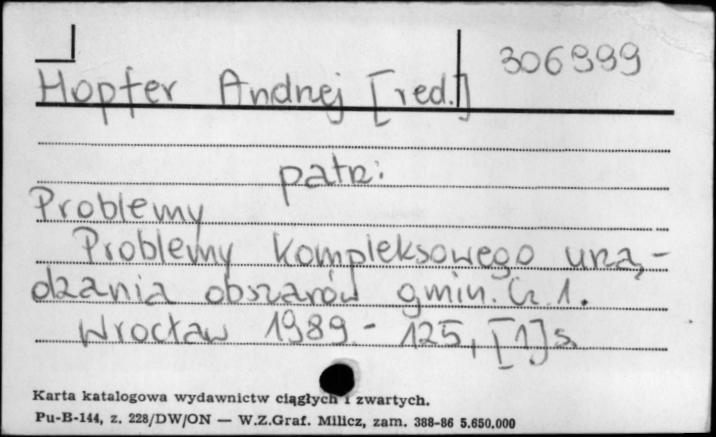 306999
Hopfer Andrzej [red.]
patrz:
Problemy
Problemy kompleksowego urzą-
dzania obszarów gmin. Cz. 1.
Wrocław 1989 - 125, [1] s.
Karta katalogowa wydawnictw ciągłych i zwartych.
Pu-B-144, z. 228/DW/ON — W.Z.Graf. Milicz, zam. 388-86 5.650.000